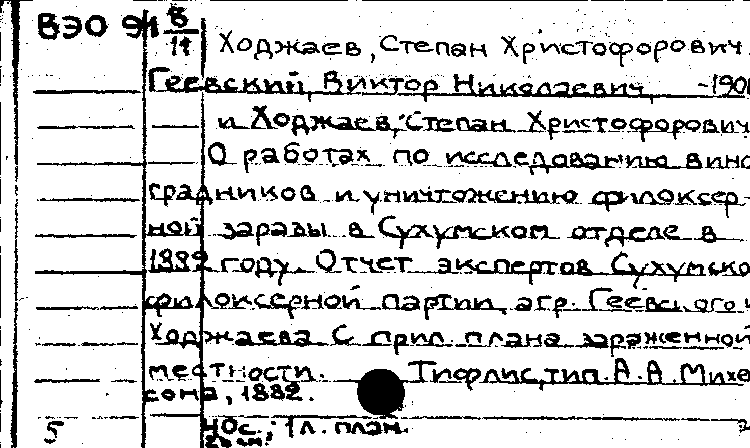 ВЭО 91 Б/11
Ходжаев, Степан Христофорович
Геевский, Виктор Николаевич, -190
и Ходжаев, Степан Христофорович
О работах по исследованию вино
градников и уничтожению филоксер-
ной заразы в Сухумском отделе в
1882 году. Отчет экспертов Сухумско
филоксерной партии агр. Геевского и
Ходжаева С прил. плана зараженной
местности. Тифлис, тип. А.А. Михе
сона, 1882.
5 1 л. план.